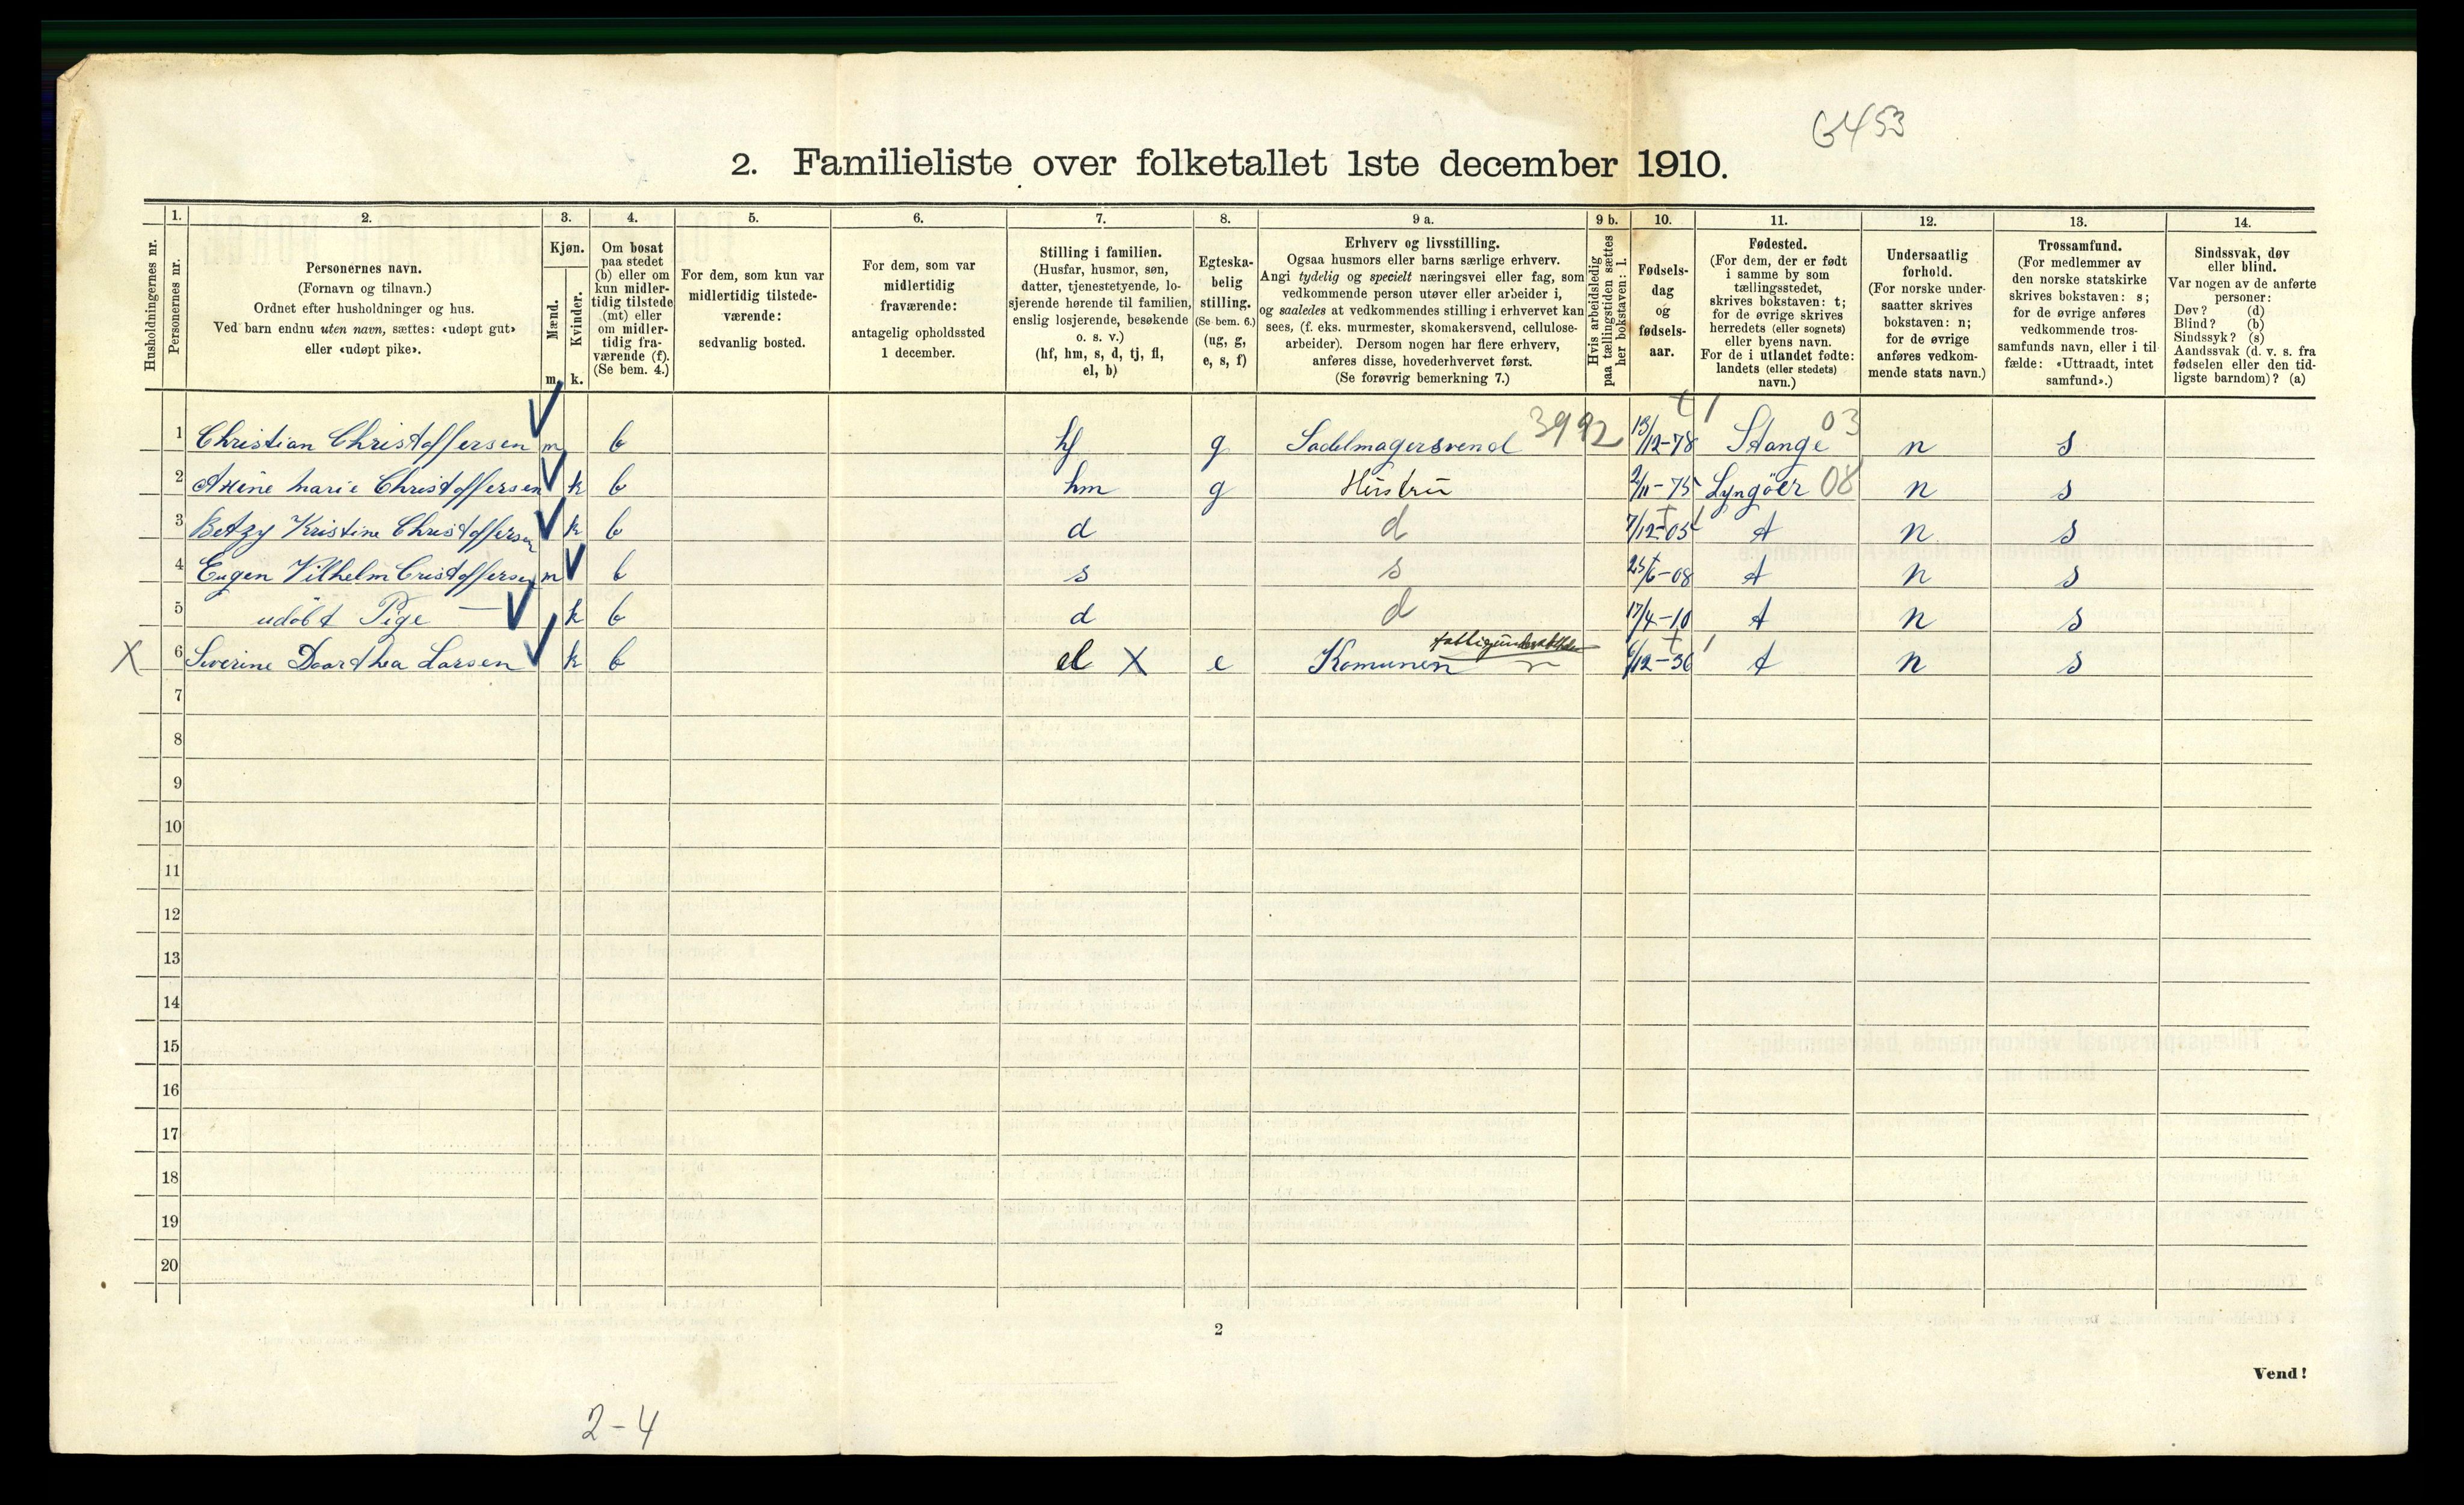 G453
2. Familieliste over folketallet 1ste december 1910.
1. 2. 3. 4. 5. 6. 7. 8. 9 a. 9 b. 10. 11. 12. 13. 14.
Husholdningernes nr.
Personernes nr.
Personernes navn.
(Fornavn og tilnavn.)
Ordnet efter husholdninger og hus.
Ved barn endnu uten navn, sættes: «udøpt gut»
eller «udøpt pike».
Kjøn.
Mænd.
Kvinder.
m. k.
Om bosat
paa stedet
(b) eller om
kun midler-
tidig tilstede
(mt) eller
om midler-
tidig fra-
værende (f).
(Se bem. 4.)
For dem, som kun var
midlertidig tilstede-
værende:
sedvanlig bosted.
For dem, som var
midlertidig
fraværende:
antagelig opholdssted
1 december.
Stilling i familien.
(Husfar, husmor, søn,
datter, tjenestetyende, lo-
sjerende hørende til familien,
enslig losjerende, besøkende
o. s. v.)
(hf, hm, s, d, tj, fl,
el, b)
Egteska-
belig
stilling.
(Se bem. 6.)
(ug, g,
e, s, f)
Erhverv og livsstilling.
Ogsaa husmors eller barns særlige erhverv.
Angi tydelig og specielt næringsvei eller fag, som
vedkommende person utøver eller arbeider i,
og saaledes at vedkommendes stilling i erhvervet kan
sees, (f. eks. murmester, skomakersvend, cellulose-
arbeider). Dersom nogen har flere erhverv,
anføres disse, hovederhvervet først.
(Se forøvrig bemerkning 7.)
Hvis arbeidsledig
paa tællingstiden sættes
her bokstaven: l.
Fødsels-
dag
og
fødsels-
aar.
Fødested.
(For dem, der er født
i samme by som
tællingsstedet,
skrives bokstaven: t;
for de øvrige skrives
herredets (eller sognets)
eller byens navn.
For de i utlandet fødte:
landets (eller stedets)
navn.)
Undersaatlig
forhold.
(For norske under-
saatter skrives
bokstaven: n;
for de øvrige
anføres vedkom-
mende stats navn.)
Trossamfund.
(For medlemmer av
den norske statskirke
skrives bokstaven: s;
for de øvrige anføres
vedkommende tros-
samfunds navn, eller i til-
fælde: «Uttraadt, intet
samfund».)
Sindssvak, døv
eller blind.
Var nogen av de anførte
personer:
Døv? (d)
Blind? (b)
Sindssyk? (s)
Aandssvak (d. v. s. fra
fødselen eller den tid-
ligste barndom)? (a)
1 Christian Christoffersen m b hf g Sadelmagersvend 3992 13/12-78 Stange 03 n s
2 Axine Marie Christoffersen k b hm g Hustru 2/11-75 Lyngöer 08 n s
3 Betzy Kristine Christoffersen k b d d 7/12-05 t n s
4 Eugen Vilhelm Cristoffersen m b s s 25/6-08 t n s
5 udöbt Pige k b d d 17/4-10 t n s
X 6 Severine Doorthea Larsen k b el X e Komunen 6/12-36 t n s
7
8
9
10
11
12
13
14
15
16
17
18
19
20
2
Vend!
2-4